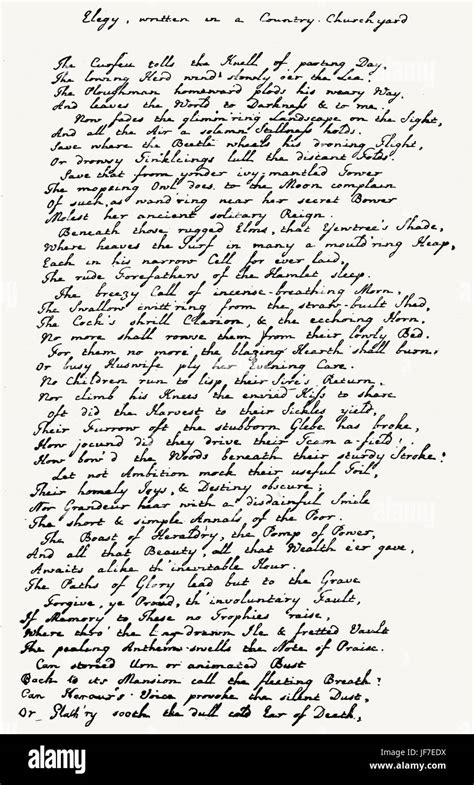 Elegy, written in a Country Churchyard
The Curfeu tolls the Knell of parting Day,
The lowing Herd wind slowly o'er the Lea:
The Ploughman homeward plods his weary Way,
And leaves the World to Darkness & to me.
Now fades the glimm'ring Landscape on the Sight,
And all the Air a solemn Stillness holds.
Save where the Beetle wheels his droning Flight,
Or drowsy Tinklings lull the distant Folds.
Save that from yonder ivy-mantled Tower
The mopeing Owl does to the Moon complain
Of such, as wand'ring near her secret Bower
Molest her ancient solitary Reign.
Beneath those rugged Elms, that Yewtree's Shade,
Where heaves the Turf in many a mould'ring Heap,
Each in his narrow Cell for ever laid,
The rude Forefathers of the Hamlet sleep.
The breezy Call of incense-breathing Morn,
The Swallow twitt'ring from the straw-built Shed,
The Cock's shrill Clarion, & the ecchoing Horn,
No more shall rowse them from their lowly Bed.
For them no more the blazing Hearth shall burn,
Or busy Huswife ply her Evening Care.
No Children run to lisp their Sire's Return,
Nor climb his Knees the envied Kiss to share
Oft did the Harvest to their Sickles yield,
Their Furrow oft the stubborn Glebe has broke,
How jocund did they drive their Team a-field!
How bow'd the Woods beneath their sturdy Stroke!
Let not Ambition mock their useful Toil,
Their homely Joys, & Destiny obscure;
Nor Grandeur hear with a disdainful Smile
The short & simple Annals of the Poor.
The Boast of Heraldry, the Pomp of Power,
And all that Beauty, all that Wealth e'er gave,
Awaits alike th' inevitable Hour.
The Paths of Glory lead but to the Grave
Forgive, ye Proud, th' involuntary Fault,
If Memory to These no Trophies raise,
Where thro' the long-drawn Ile & fretted Vault
The pealing Anthem swells the Note of Praise.
Can storied Urn or animated Bust
Back to its Mansion call the fleeting Breath?
Can Honour's Voice provoke the silent Dust,
Or Flatt'ry sooth the dull cold Ear of Death,
alamy stock photo
JF7EDX